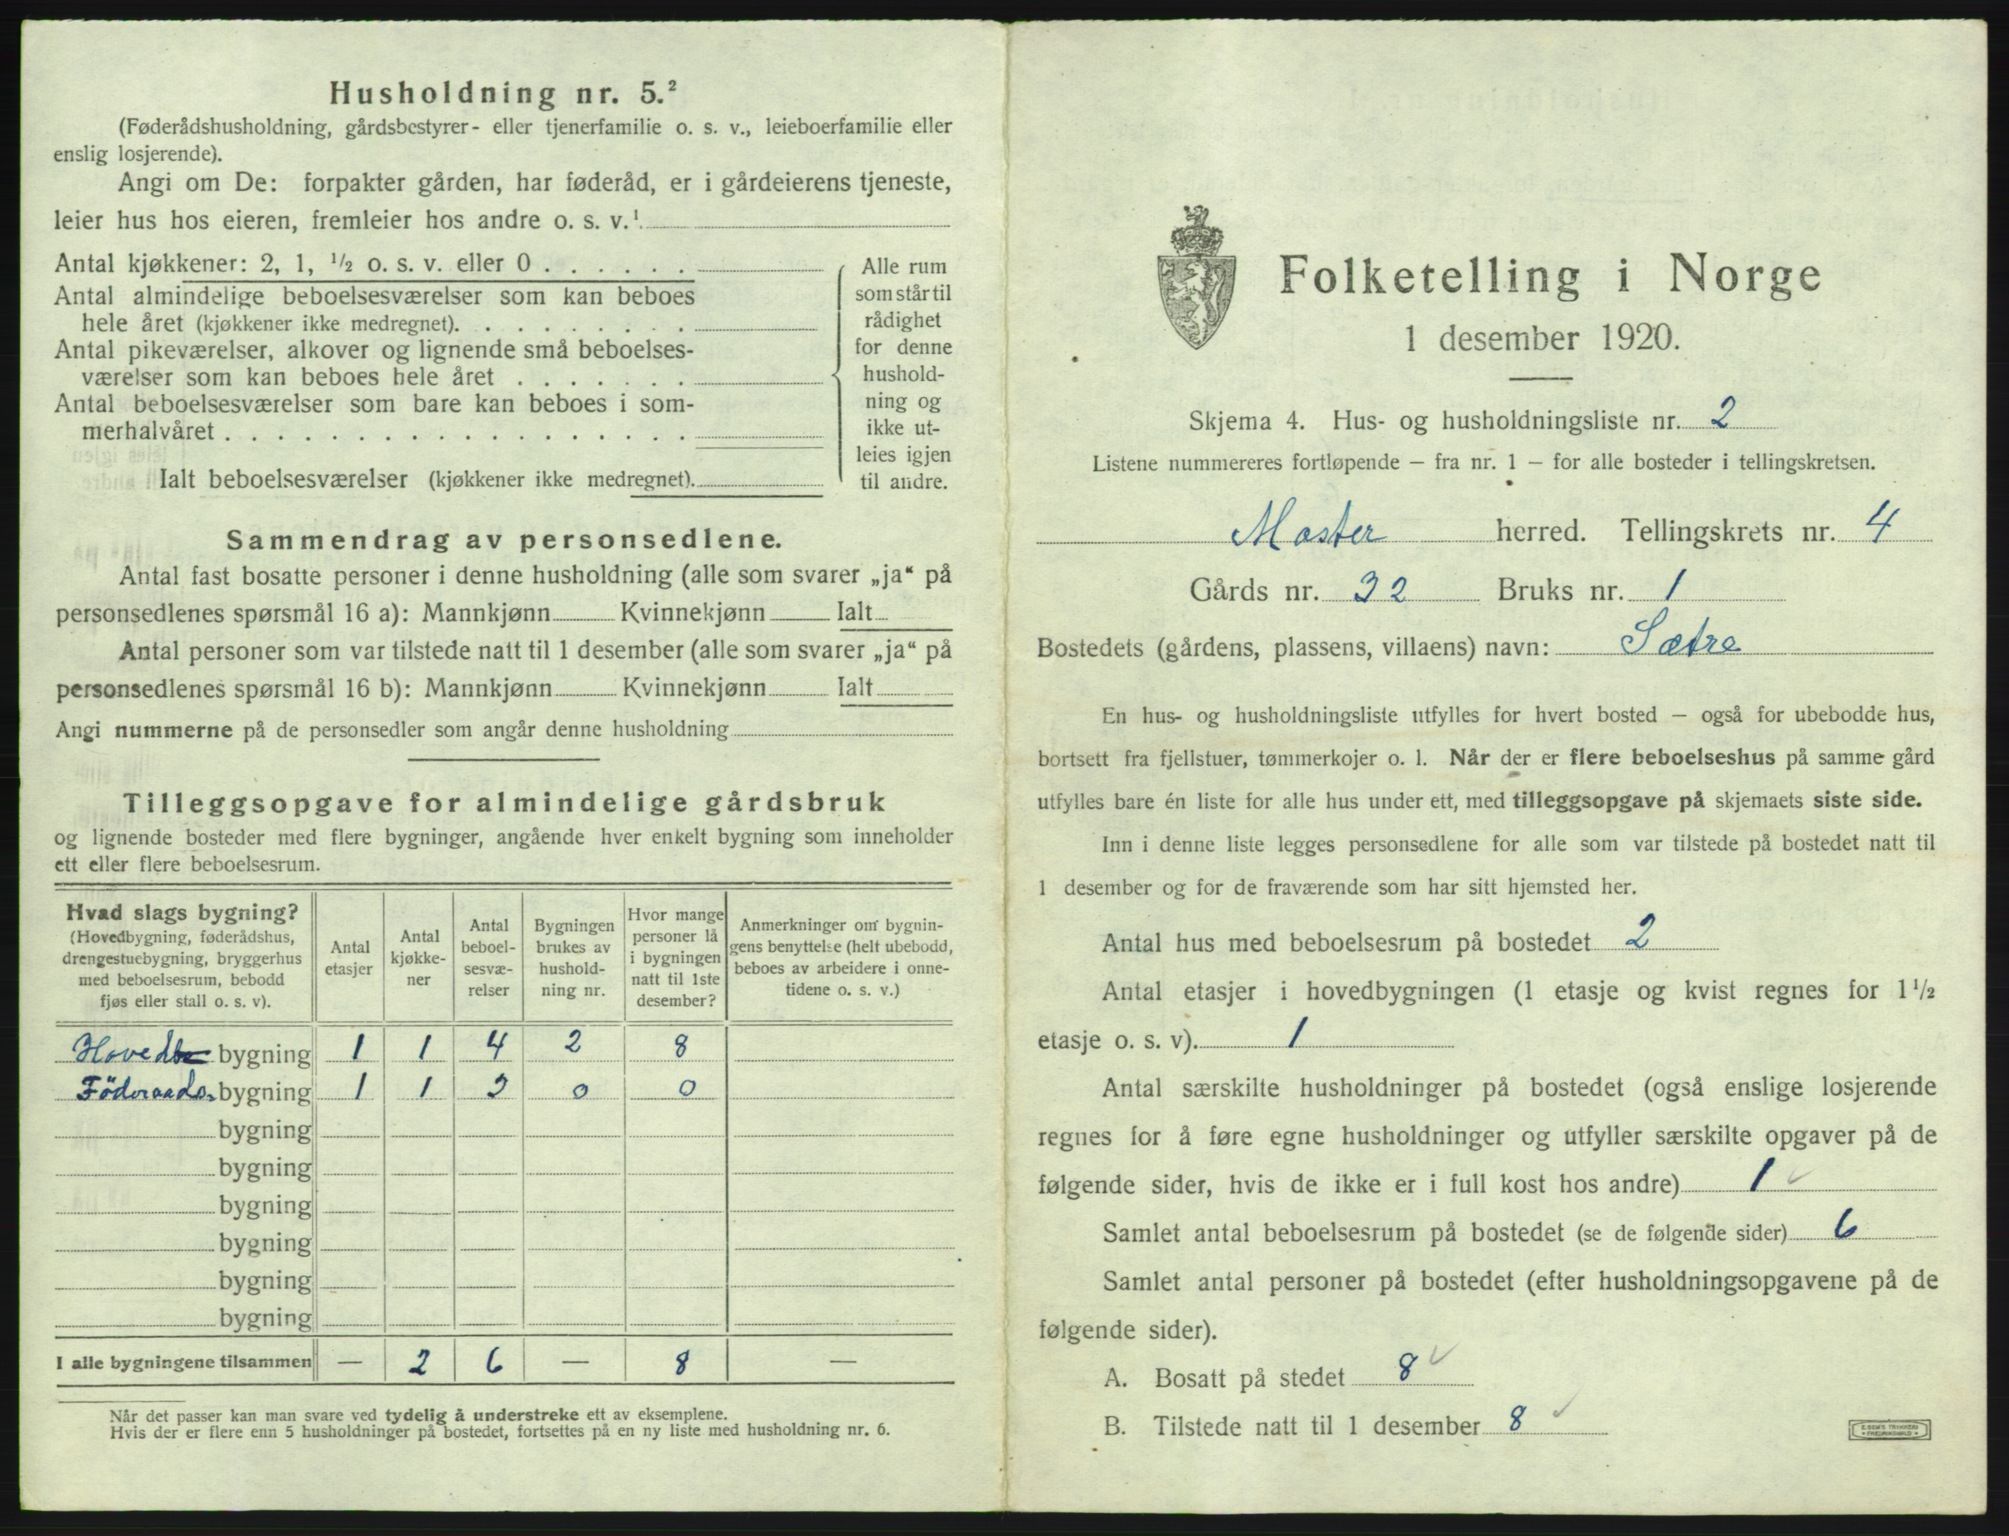 Husholdning nr. 5.²
(Føderådshusholdning, gårdsbestyrer- eller tjenerfamilie o. s. v., leieboerfamilie eller
enslig losjerende).
Angi om De: forpakter gården, har føderåd, er i gårdeierens tjeneste,
leier hus hos eieren, fremleier hos andre o. s. v.¹
Antal kjøkkener: 2, 1, ½ o. s. v. eller 0 . . . . . .
Antal almindelige beboelsesværelser som kan beboes
hele året (kjøkkener ikke medregnet). . . . . . . . .
Antal pikeværelser, alkover og lignende små beboelses-
værelser som kan beboes hele året . . . . . . .
Antal beboelsesværelser som bare kan beboes i som-
merhalvåret . . . . . . . . . . . . . . . . . .
Ialt beboelsesværelser (kjøkkener ikke medregnet).
Alle rum
som står til
rådighet
for denne
hushold-
ning og
ikke ut-
leies igjen
til andre.
Sammendrag av personsedlene.
Antal fast bosatte personer i denne husholdning (alle som svarer „ja“ på
personsedlenes spørsmål 16 a): Mannkjønn Kvinnekjønn Ialt
Antal personer som var tilstede natt til 1 desember (alle som svarer „ja“ på
personsedlenes spørsmål 16 b): Mannkjønn Kvinnekjønn Ialt
Angi nummerne på de personsedler som angår denne husholdning
Tilleggsopgave for almindelige gårdsbruk
og lignende bosteder med flere bygninger, angående hver enkelt bygning som inneholder
ett eller flere beboelsesrum.
Hvad slags bygning?
(Hovedbygning, føderådshus,
drengestuebygning, bryggerhus
med beboelsesrum, bebodd
fjøs eller stall o. s. v).
Antal
etasjer
Antal
kjøkke-
ner
Antal
beboel-
sesvæ-
relser
Bygningen
brukes av
hushold-
ning nr.
Hvor mange
personer lå
i bygningen
natt til 1ste
desember?
Anmerkninger om bygnin-
gens benyttelse (helt ubebodd,
beboes av arbeidere i onne-
tidene o. s. v.)
Hovedbygning 1 1 4 2 8
Föderaads-bygning 1 1 2 0 0
bygning
bygning
bygning
bygning
bygning
bygning
I alle bygningene tilsammen — 2 6 — 8 —
Når det passer kan man svare ved tydelig å understreke ett av eksemplene.
Hvis der er flere enn 5 husholdninger på bostedet, fortsettes på en ny liste med husholdning nr. 6.
Folketelling i Norge
1 desember 1920.
Skjema 4. Hus- og husholdningsliste nr. 2
Listene nummereres fortløpende – fra nr. 1 – for alle bosteder i tellingskretsen.
Moster herred. Tellingskrets nr. 4
Gårds nr. 32 Bruks nr. 1
Bostedets (gårdens, plassens, villaens) navn: Sætre
En hus- og husholdningsliste utfylles for hvert bosted – også for ubebodde hus,
bortsett fra fjellstuer, tømmerkojer o. l. Når der er flere beboelseshus på samme gård
utfylles bare én liste for alle hus under ett, med tilleggsopgave på skjemaets siste side.
Inn i denne liste legges personsedlene for alle som var tilstede på bostedet natt til
1 desember og for de fraværende som har sitt hjemsted her.
Antal hus med beboelsesrum på bostedet 2
Antal etasjer i hovedbygningen (1 etasje og kvist regnes for 1½
etasje o. s. v). 1
Antal særskilte husholdninger på bostedet (også enslige losjerende
regnes for å føre egne husholdninger og utfyller særskilte opgaver på de
følgende sider, hvis de ikke er i full kost hos andre) 1
Samlet antal beboelsesrum på bostedet (se de følgende sider) 6
Samlet antal personer på bostedet (efter husholdningsopgavene på de
følgende sider).
A. Bosatt på stedet 8
B. Tilstede natt til 1 desember 8